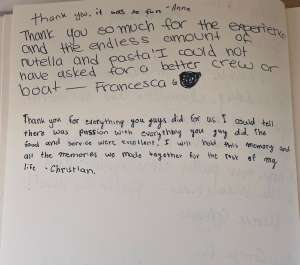 Thank you, it was so fun - Anne
Thank you so much for the experience
and the endless amount of
nutella and pasta! I could not
have asked for a better crew or
boat — Francesca
Thank you for everything you gays did for us. I could tell
there was passion with everything you guy did. The
food and service were excellent. I will hold this memory and
all the memories we made together for the rest of my
life - Christian.